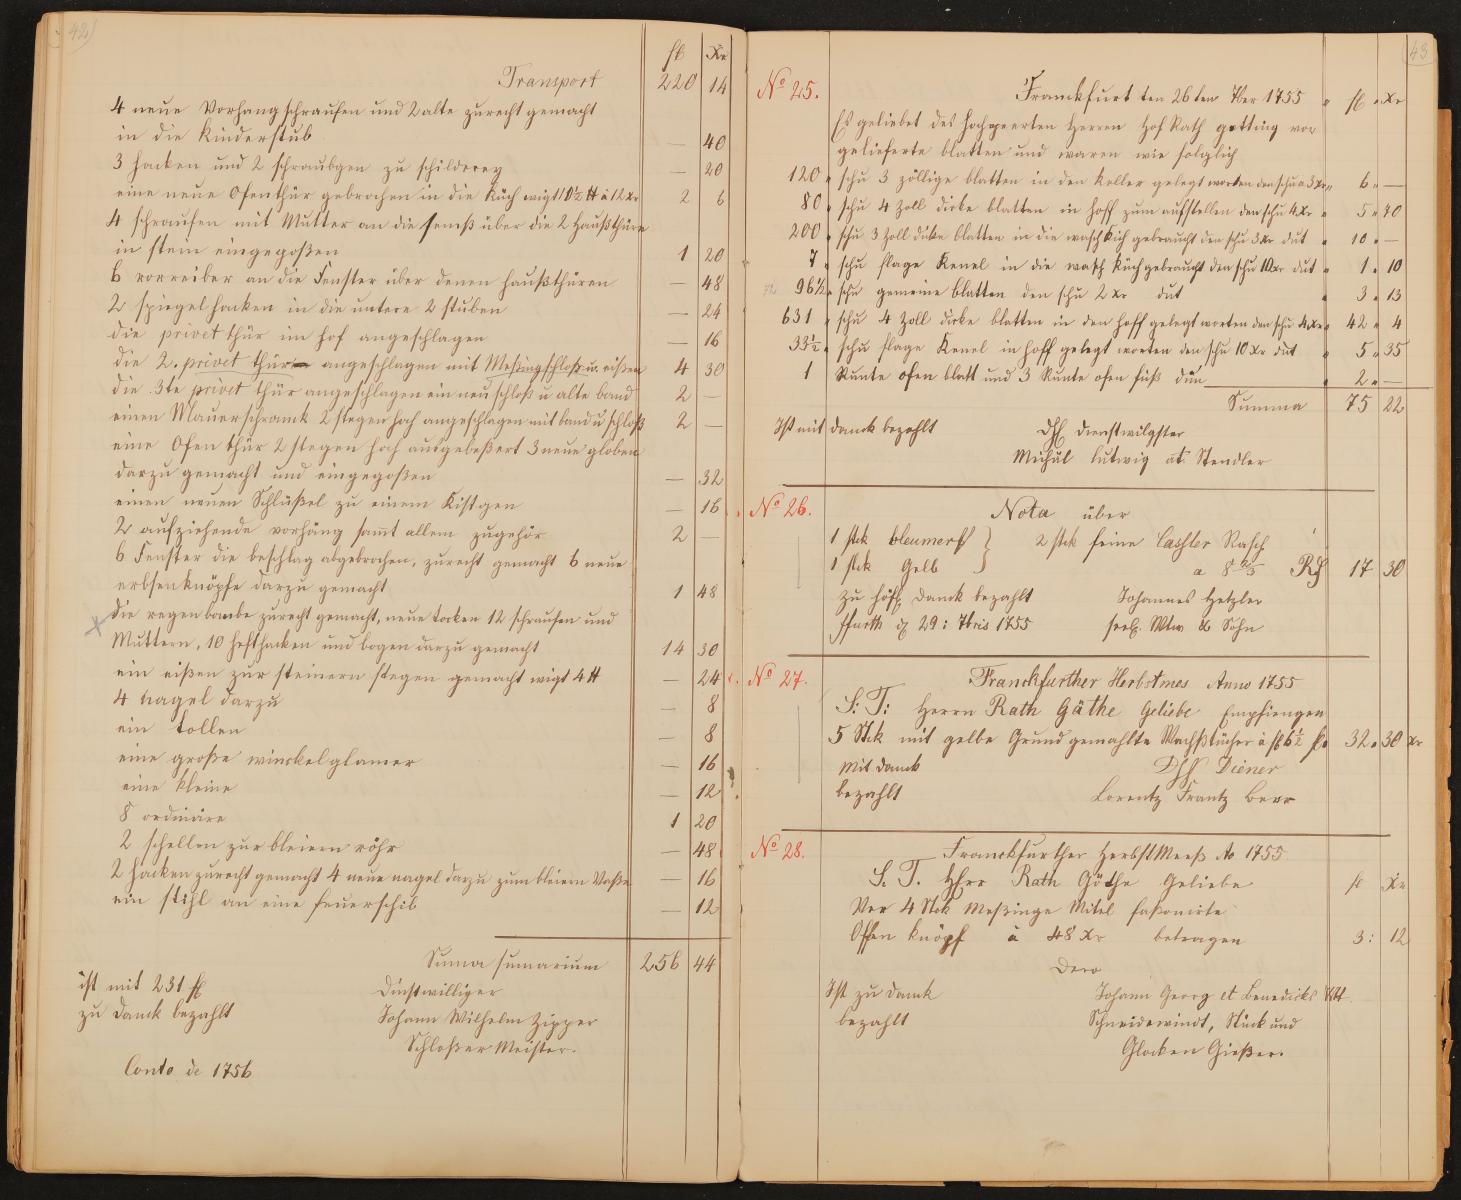 42
fl Xr
Transport 220 14
4 neue Vorhangschraufen und 2 alte zurecht gemacht
in die Kinderstub — 40
3 hacken und 2 schraubgen zu schilderey — 20
eine neue Ofenthür gebrochen in die Küch wigt 10½ ℔ à 12 Xr 2 6
4 schraufen mit Mutter an die semß über die 2 Haußthüre
in stein eingegoßen 1 20
6 vorreiber an die Fenster über denen haußthüren — 48
2 spiegelhacken in die untere 2 stuben — 24
die privet thür im hof angeschlagen — 16
die 2. privet thür angeschlagen mit Meßingschloß u. eißen 4 30
die 3te privet thür angeschlagen ein neu schloß u alte band 2 —
einen Mauerschranck 2 stegen hoch angeschlagen mit band u schloß 2 —
eine Ofen thür 2 stegen hoch ausgebeßert 3 neue globen
darzu gemacht und eingegoßen — 32
einen neuen Schlüßel zu einem Kistgen — 16
2 aufziehende vorhäng samt allem zugehör 2 —
6 Fenster die beschlag abgebrochen, zurecht gemacht 6 neue
erbsenknöpfe darzu gemacht 1 48
die regenbombe zurecht gemacht, neue docken 12 schraufen und
Muttern, 10 hefthacken und bogen darzu gemacht 14 30
ein eißen zur steinern stegen gemacht wigt 4 ℔ — 24
4 nagel darzu — 8
ein tollen — 8
eine große winckelglamer — 16
eine kleine — 12
8 ordinäre 1 20
2 schellen zur bleiern röhr — 48
2 hacken zurecht gemacht 4 neue nagel darzu zum bleiern — 16
ein stihl an eine feuerschib — 12
Suma sumarium 256 44
ist mit 231 fl
zu danck bezahlt
Dinstwilliger
Johann Wilhelm Zipper
Schloßer Meister.
Conto de 1756
43
No 25. Franckfurt ten 26ten 7ber 1755 fl Xr
Es geliebet des Herren Hof Rath getting vor
gelieferte blatten und waren wie folglich
120 schu 3 zöllige blatten in den Keller gelegt worten den schu a 3 Xr 6 —
80 schu 4 Zoll dicke blatten in hoff zum aufstellen den schu 4 Xr 5 40
200 schu 3 Zoll dicke blatten in die wasch küch gebraucht den schu 3 Xr dut 10 —
7 schu flage Kenel in die wasch küch gebraucht den schu 10 Xr dut 1 10
96½ schu gemeine blatten den schu 2 Xr dut 3 13
631 schu 4 Zoll dicke blatten in den hoff gelegt worten den schu 4 Xr 42 4
33½ schu flage Kenel in hoff gelegt worten den schu 10 Xr dut 5 35
1 Runte ofen blatt und 3 Runte ofen füß dun 2 —
Summa 75 22
Ist mit danck bezahlt
dienstwilgster
Michul lutwig Stendler
No 26. Nota über
1 stck bleumerf } 2 stck feine Casseler Rasch
1 stck Gelb a 17 30
zu höfl. Danck bezahlt Johannes Hetzler
ffurth d 29: 7bris 1755 seel. Wtw & Sohn
No 27. Franckfurther Herbstmes Anno 1755
S: T: Herrn Rath Göthe Geliebe Empfiengen
5 Stck mit gelbe Grund gemahlte Wachstücher à fl 6½ 32 30 Xr
mit danck Diener
bezahlt Lorentz Frantz Berr
No 28. Franckfurther HerbstMeeß Ao 1755
S. T. Herr Rath Göthe Geliebe fl Xr
Vor 4 Stck Meßinge Mitel fasonirte
Offen Knöpf à 48 Xr betragen 3: 12
Dero
Ist zu danck Johann Georg et Benedickt
bezahlt Schneidewindt, Stück und
Glocken Gießer.